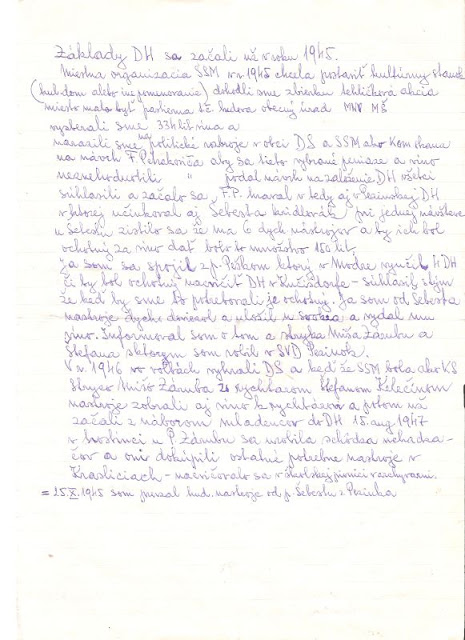 Základy DH sa začali už v roku 1945.
Miestna organizacia SSM v r. 1945 chcela postaviť kultúrny stánok
(kult. dom aleto iné pomenovanie) dohodli sme zbierku tehličková akcia
miesto malo byť partienna kde budova obecný úrad MNV MŠ
vyzberali sme 33 hlt vína a
narazili sme politické rozbroje v obci DS a SSM ako Komshana
na návrh F. Petrakoviča aby sa tieto vyhrané peniaze a víno
neznehodnotili " podal návrh na založenie DH všetci
súhlasili a začalo sa. F.P. hraval v tedy aj v Pezinskej DH
v ktorej účinkoval aj Šebesta kridlovák pri jednej návšteve
u Šebestu zistilo sa že ma 6 dych nástrojov a by ich bol
ochotný za víno dať bolo to množstvo 150 lit.
Ja som sa spojil z p. Peškom ktorý v Modre vyučil 1. DH
či by bol ochotný nacvičiť DH v - súhlasil s tým
že keď by sme to potrebovali je ochotný. Ja som od Šebesta
nastroje dych. doviezol a uložil u a vydal mu
víno. Informoval som o tom a strýka Miša Zámbu a
Štefana s ktorym som robil v SVD Pezinok.
V r. 1946 vo voľbách vyhrali DS a keď že SSM bola ako KS
Strýco Mišo Zámba zo rychtárom Štefanom Kelečinom
nastroje zobrali aj víno k rychtárovi a potom už
začali z náborom mládencov do DH 15. aug 1947
v hostinci u P. Zámbu sa urobila schôdza
čov a oni dokúpili ostatné potrebne nastroje v
Krasliciach - nacvičovalo sa v školskej pivnici
= 15.X. 1945 som prevzal hud. nastroje od p. Šebestu z Pezinka